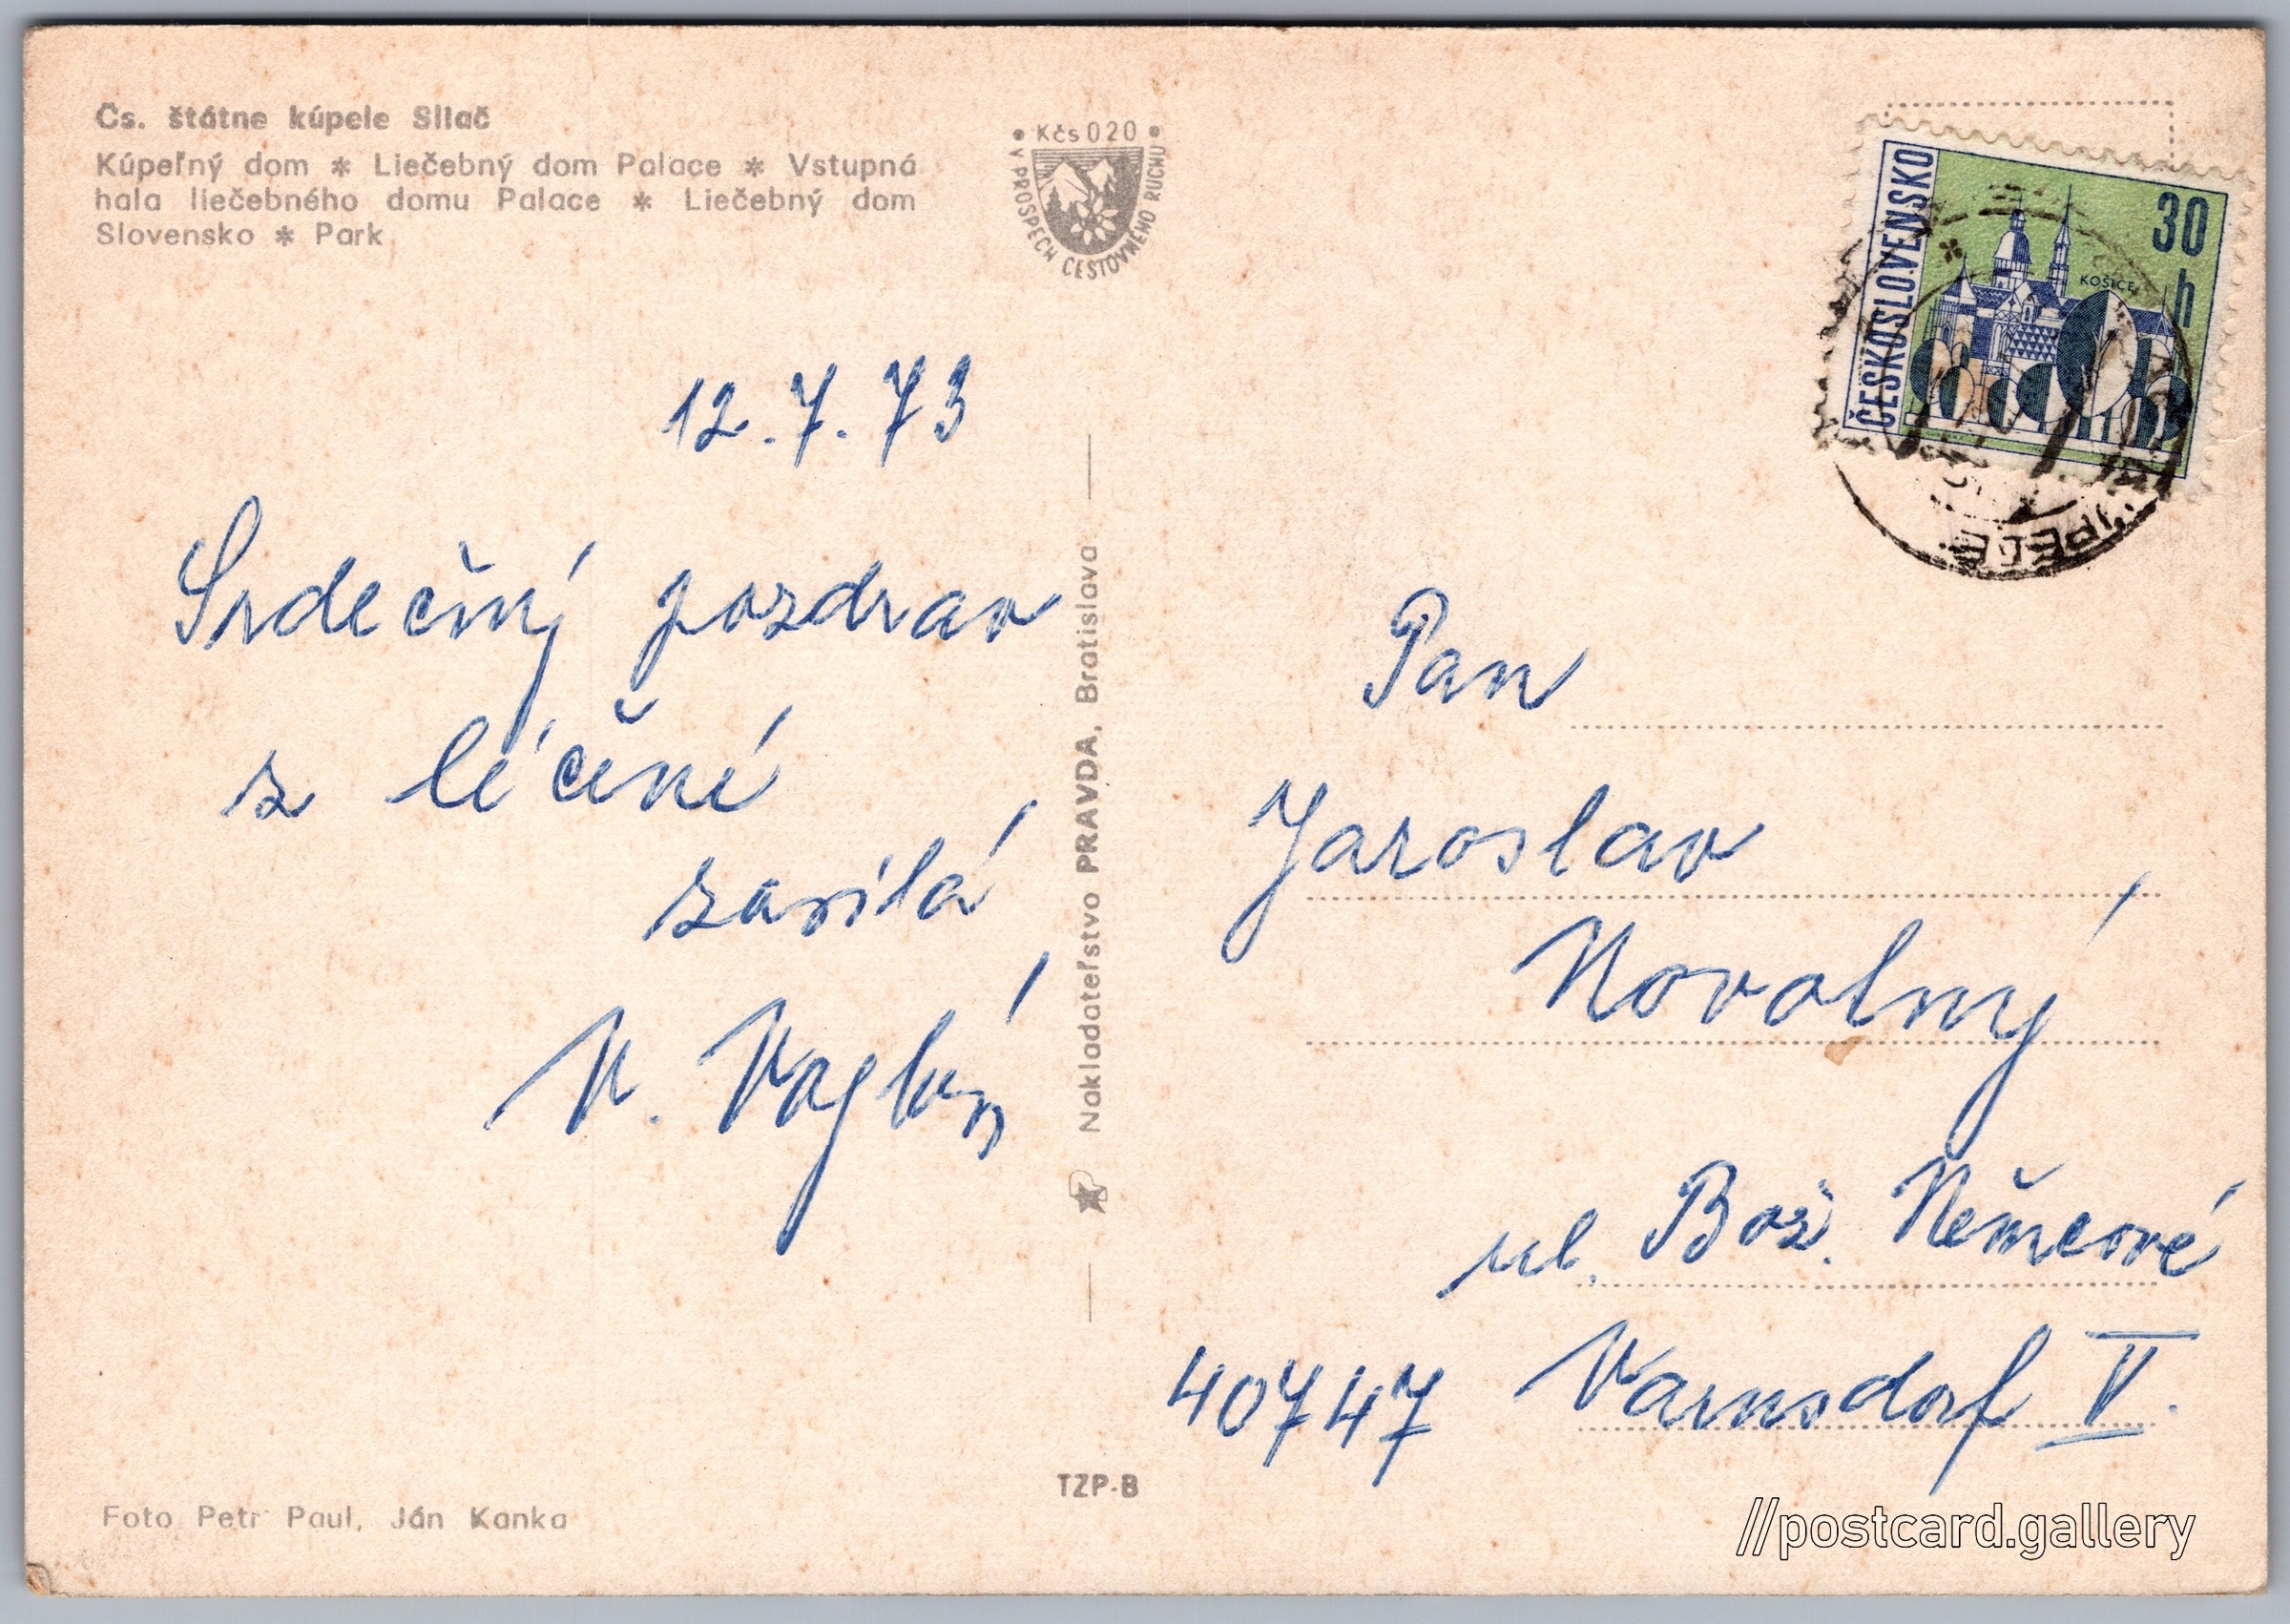 Čs. štátne kúpele Sliač
Kúpeľný dom * Liečebný dom Palace * Vstupná
hala liečebného domu Palace * Liečebný dom
Slovensko * Park
• Kčs 020 •
V PROSPECH CESTOVNÉHO RUCHU
ČESKOSLOVENSKO
30
h
KOŠICE
12.7.73
Srdečný pozdrav
z léčení
zasílá
Nakladateľstvo PRAVDA, Bratislava
Pan
Jaroslav
Novotný
ul. Bož. Němcové
40747 Varnsdorf V.
TZP-B
Foto Petr Paul, Ján Kanka
//postcard.gallery